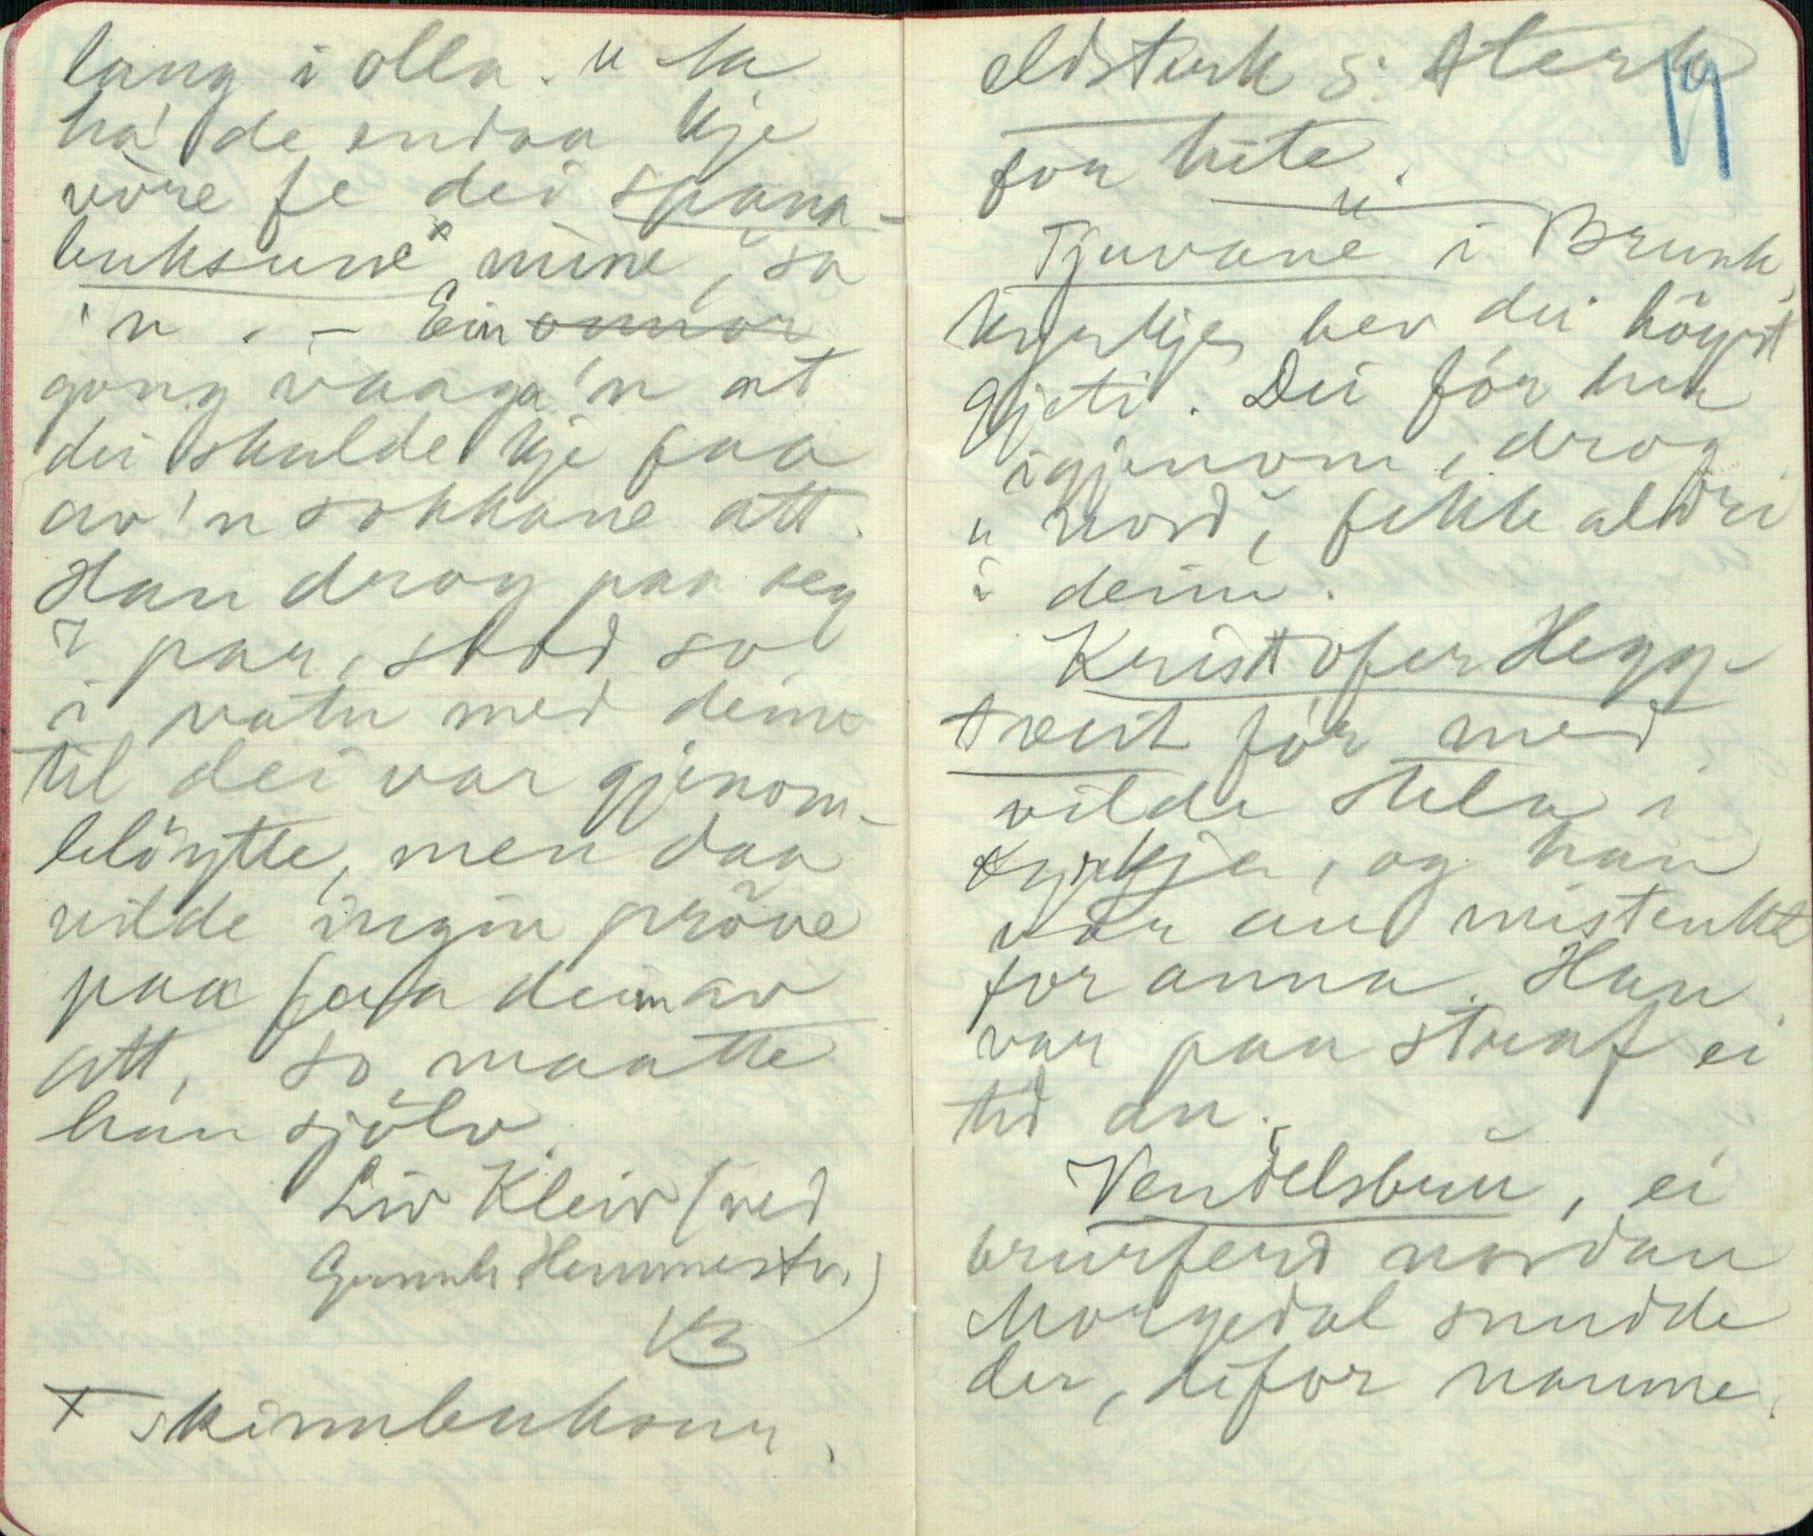 lang i olla. "Ja
ha' de endaa kje
vòre fe dei spana-
buksune x mine", sa
'n. - Ein onnor
gong vaaga'n at
dei skulde kje faa
av'n sokkane att.
Han drog paa seg
7 par, stod so
i vatn med deim
til dei var gjenom-
bløytte, men daa
vilde ingin prøve
paa faa deim av
att, so maatte
han sjølv.
Liv Kleiv (ved
Gunnh. Hemmestv.)
x skinnbuksur.
eldsterk ɔ: sterk
for hite.
19
Tjuvane i Brunk.
kyrkje hev dei høgst
gjeti. Dei fór her
igjenom, drog
nord, fekk aldri
i deim.
Kristofer Hegg-
tveit fór med
vilde stela i
kyrkja, og han
var au mistenkt
for anna. Han
var paa straf ei
tid au.
Vendelsbuu, ei
brurferd nordan
Morgedal snudde
der, difor namne.